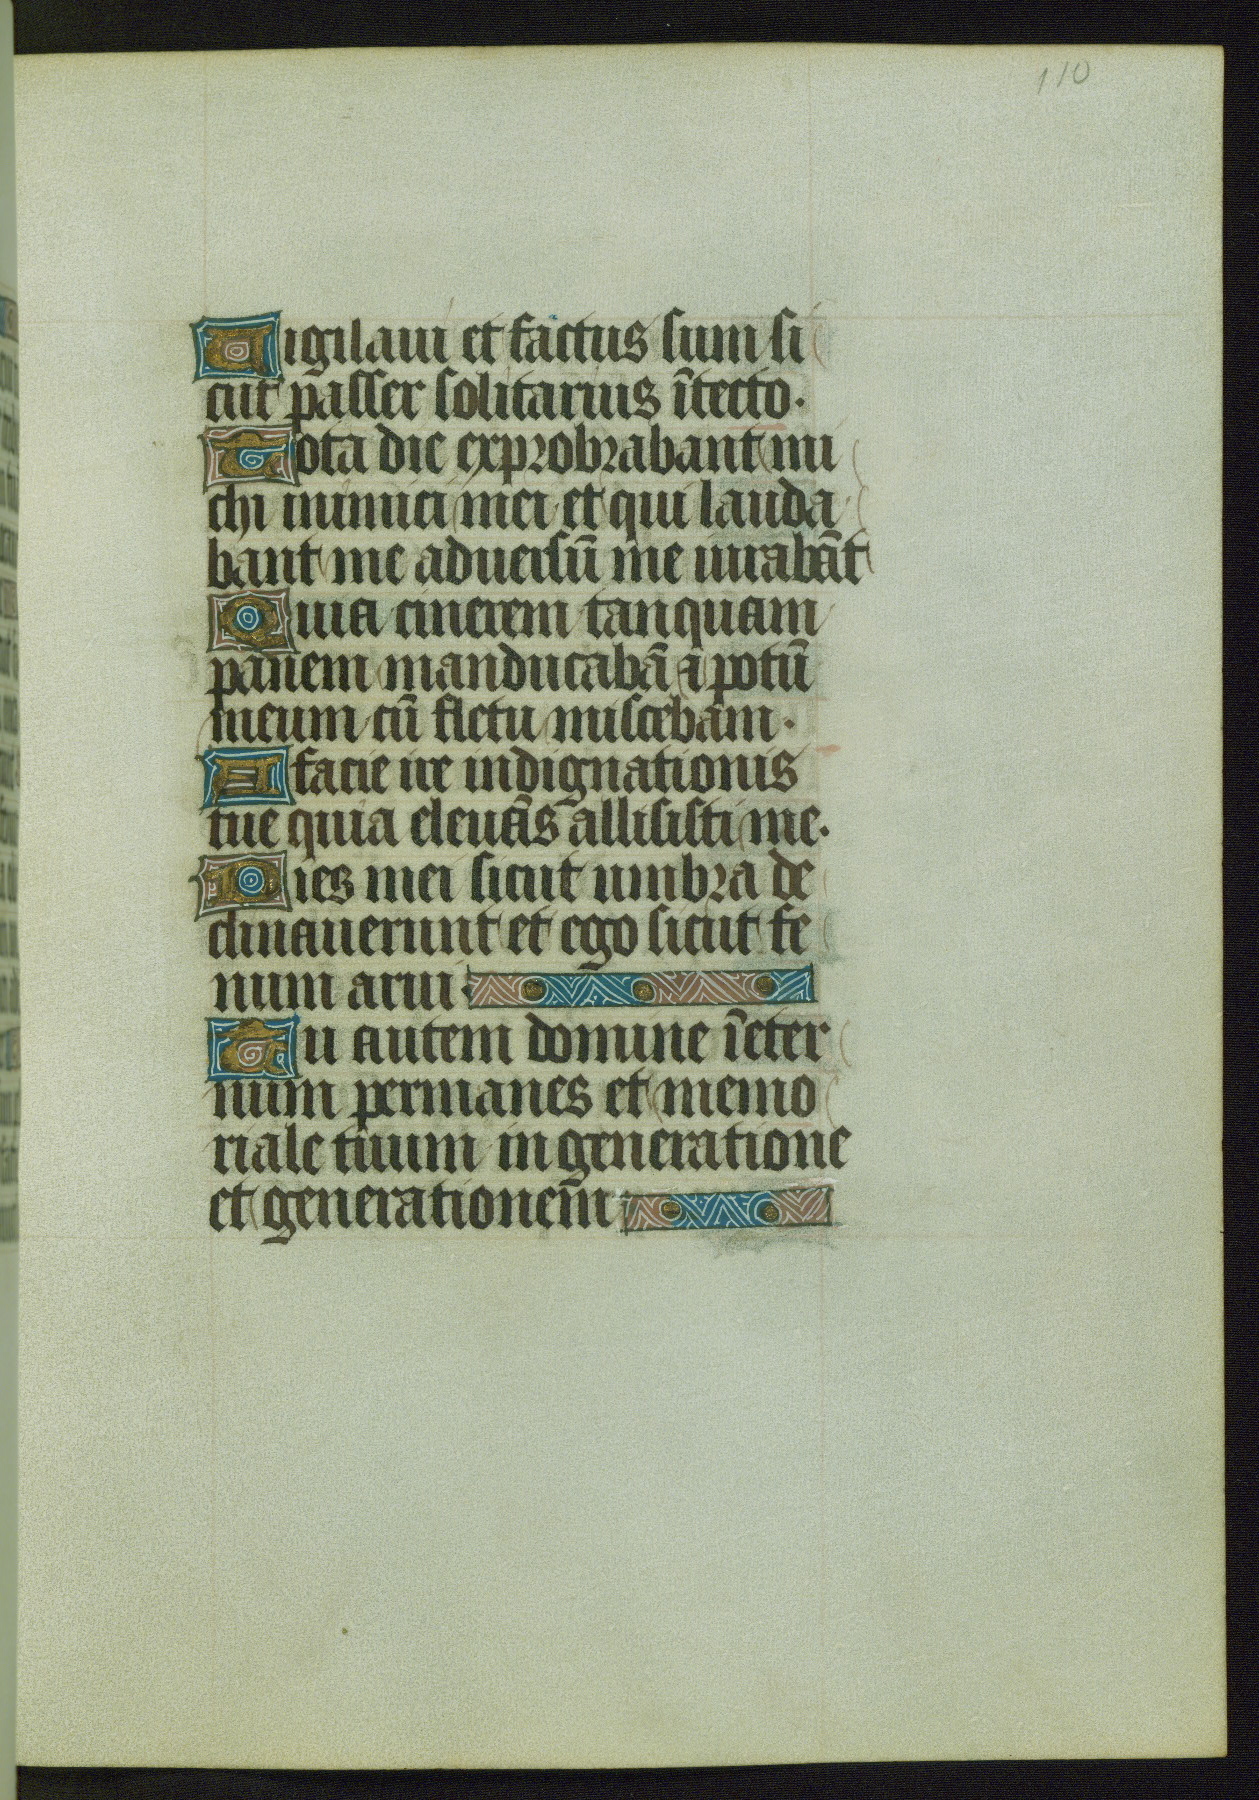 110
Uigilaui et factus sum si
cut passer solitarius ītecto.
Tota die exprobrabant mi
chi inimici mei et qui lauda
bant me aduersū me iurabāt
Quia cinerem tanquam
panem manducabā ⁊ potū
meum cū fletu miscebam.
A facie ire indignationis
tue quia eleuās allisisti me.
Dies mei sicut umbra de
clinauerunt et ego sicut fe
num arui.
Tu autem domine īeter
num permanes et memo
riale tuum in generatione
et generationem̄